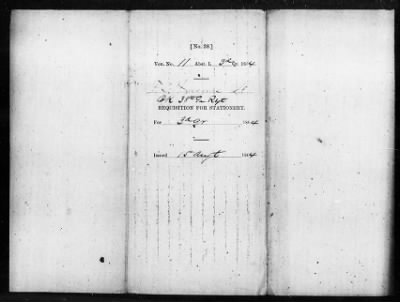 [No. 38]
Vou. No. 11 Abst. L 3d Qr 1864
REQUISITION FOR STATIONERY.
For 3d Qr 1864
Issued 15 Augt 1864